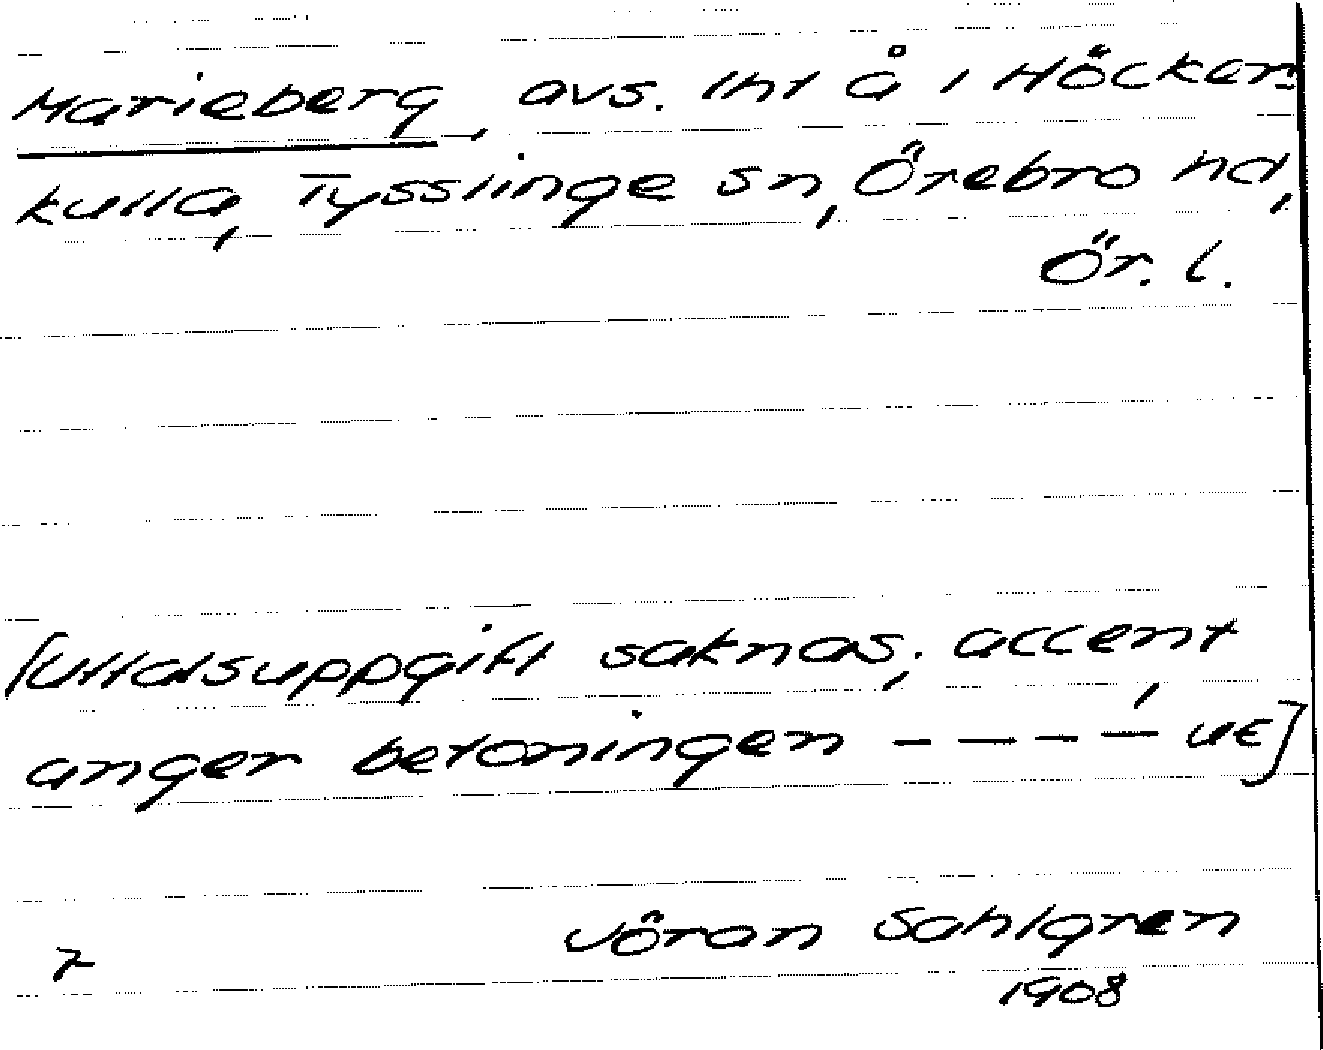 Marieberg, avs. lht å i Höckers-
kulla, Tysslinge sn, Örebro hd,
Ör. l.
[Uttalsuppgift saknas; accent
anger betoningen – – – –́ UE]
Jöran Sahlgren
1908